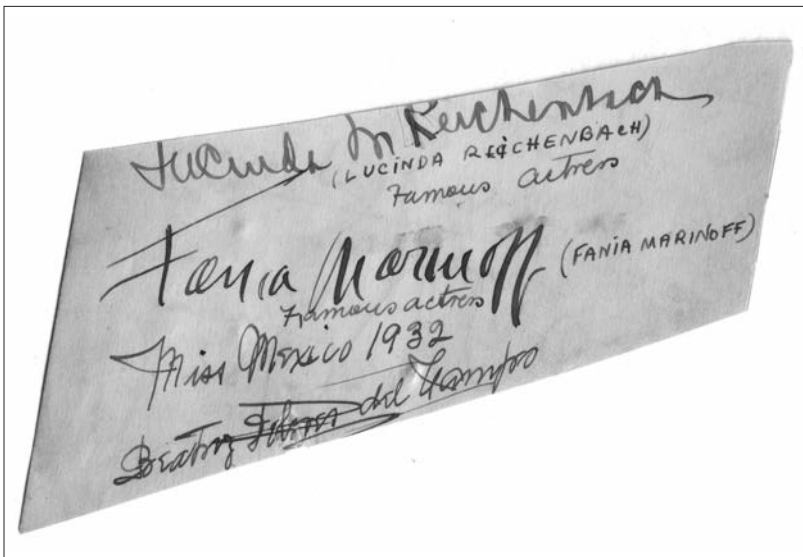 Lucinda M Reichenbach
(LUCINDA REICHENBACH)
Famous actress
Fania Marinoff (FANIA MARINOFF)
Famous actress
Miss Mexico 1932
Beatriz del Campo